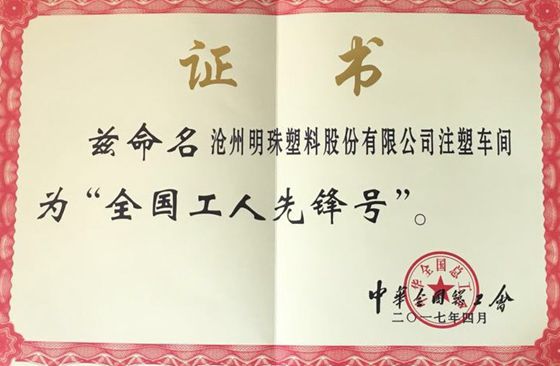 证书
兹命名沧州明珠塑料股份有限公司注塑车间
为“全国工人先锋号”。
中华全国总工会
二〇一七年四月